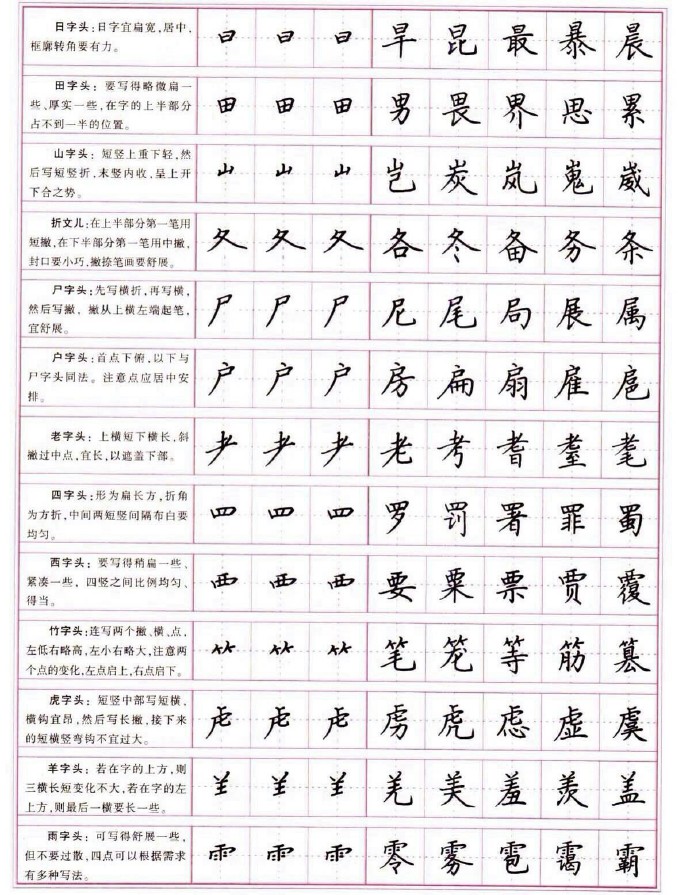 日字头：日字宜扁宽，居中，
框廓转角要有力。
日 日 日 旱 昆 最 暴 晨
田字头：要写得略微扁一
些，厚实一些，在字的上半部分
占不到一半的位置。
田 田 田 男 畏 界 思 累
山字头：短竖上重下轻，然
后写短竖折，末竖内收，呈上开
下合之势。
山 山 山 岂 炭 岚 嵬 崴
折文儿：在上半部分第一笔用
短撇，在下半部分第一笔用中撇，
封口要小巧，撇捺笔画要舒展。
夂 夂 夂 各 冬 备 务 条
尸字头：先写横折，再写横，
然后写撇，撇从上横左端起笔，
宜舒展。
尸 尸 尸 尼 尾 局 展 属
户字头：首点下俯，以下与
尸字头同法。注意点应居中安
排。
户 户 户 房 扁 扇 雇 扈
老字头：上横短下横长，斜
撇过中点，宜长，以遮盖下部。
耂 耂 耂 老 考 耆 耋 耄
四字头：形为扁长方，折角
为方折，中间两短竖间隔布白要
均匀。
罒 罒 罒 罗 罚 署 罪 蜀
西字头：要写得稍扁一些、
紧凑一些，四竖之间比例均匀、
得当。
覀 覀 覀 要 粟 票 贾 覆
竹字头：连写两个撇、横、点，
左低右略高，左小右略大，注意两
个点的变化，左点启上，右点启下。
⺮ ⺮ ⺮ 笔 笼 等 筋 篡
虎字头：短竖中部写短横，
横钩宜昂，然后写长撇，接下来
的短横竖弯钩不宜过大。
虍 虍 虍 虏 虎 虑 虚 虞
羊字头：若在字的上方，则
三横长短变化不大，若在字的左
上方，则最后一横要长一些。
⺷ ⺷ ⺷ 羌 美 羞 羡 盖
雨字头：可写得舒展一些，
但不要过散，四点可以根据需求
有多种写法。
⻗ ⻗ ⻗ 零 雾 雹 霭 霸